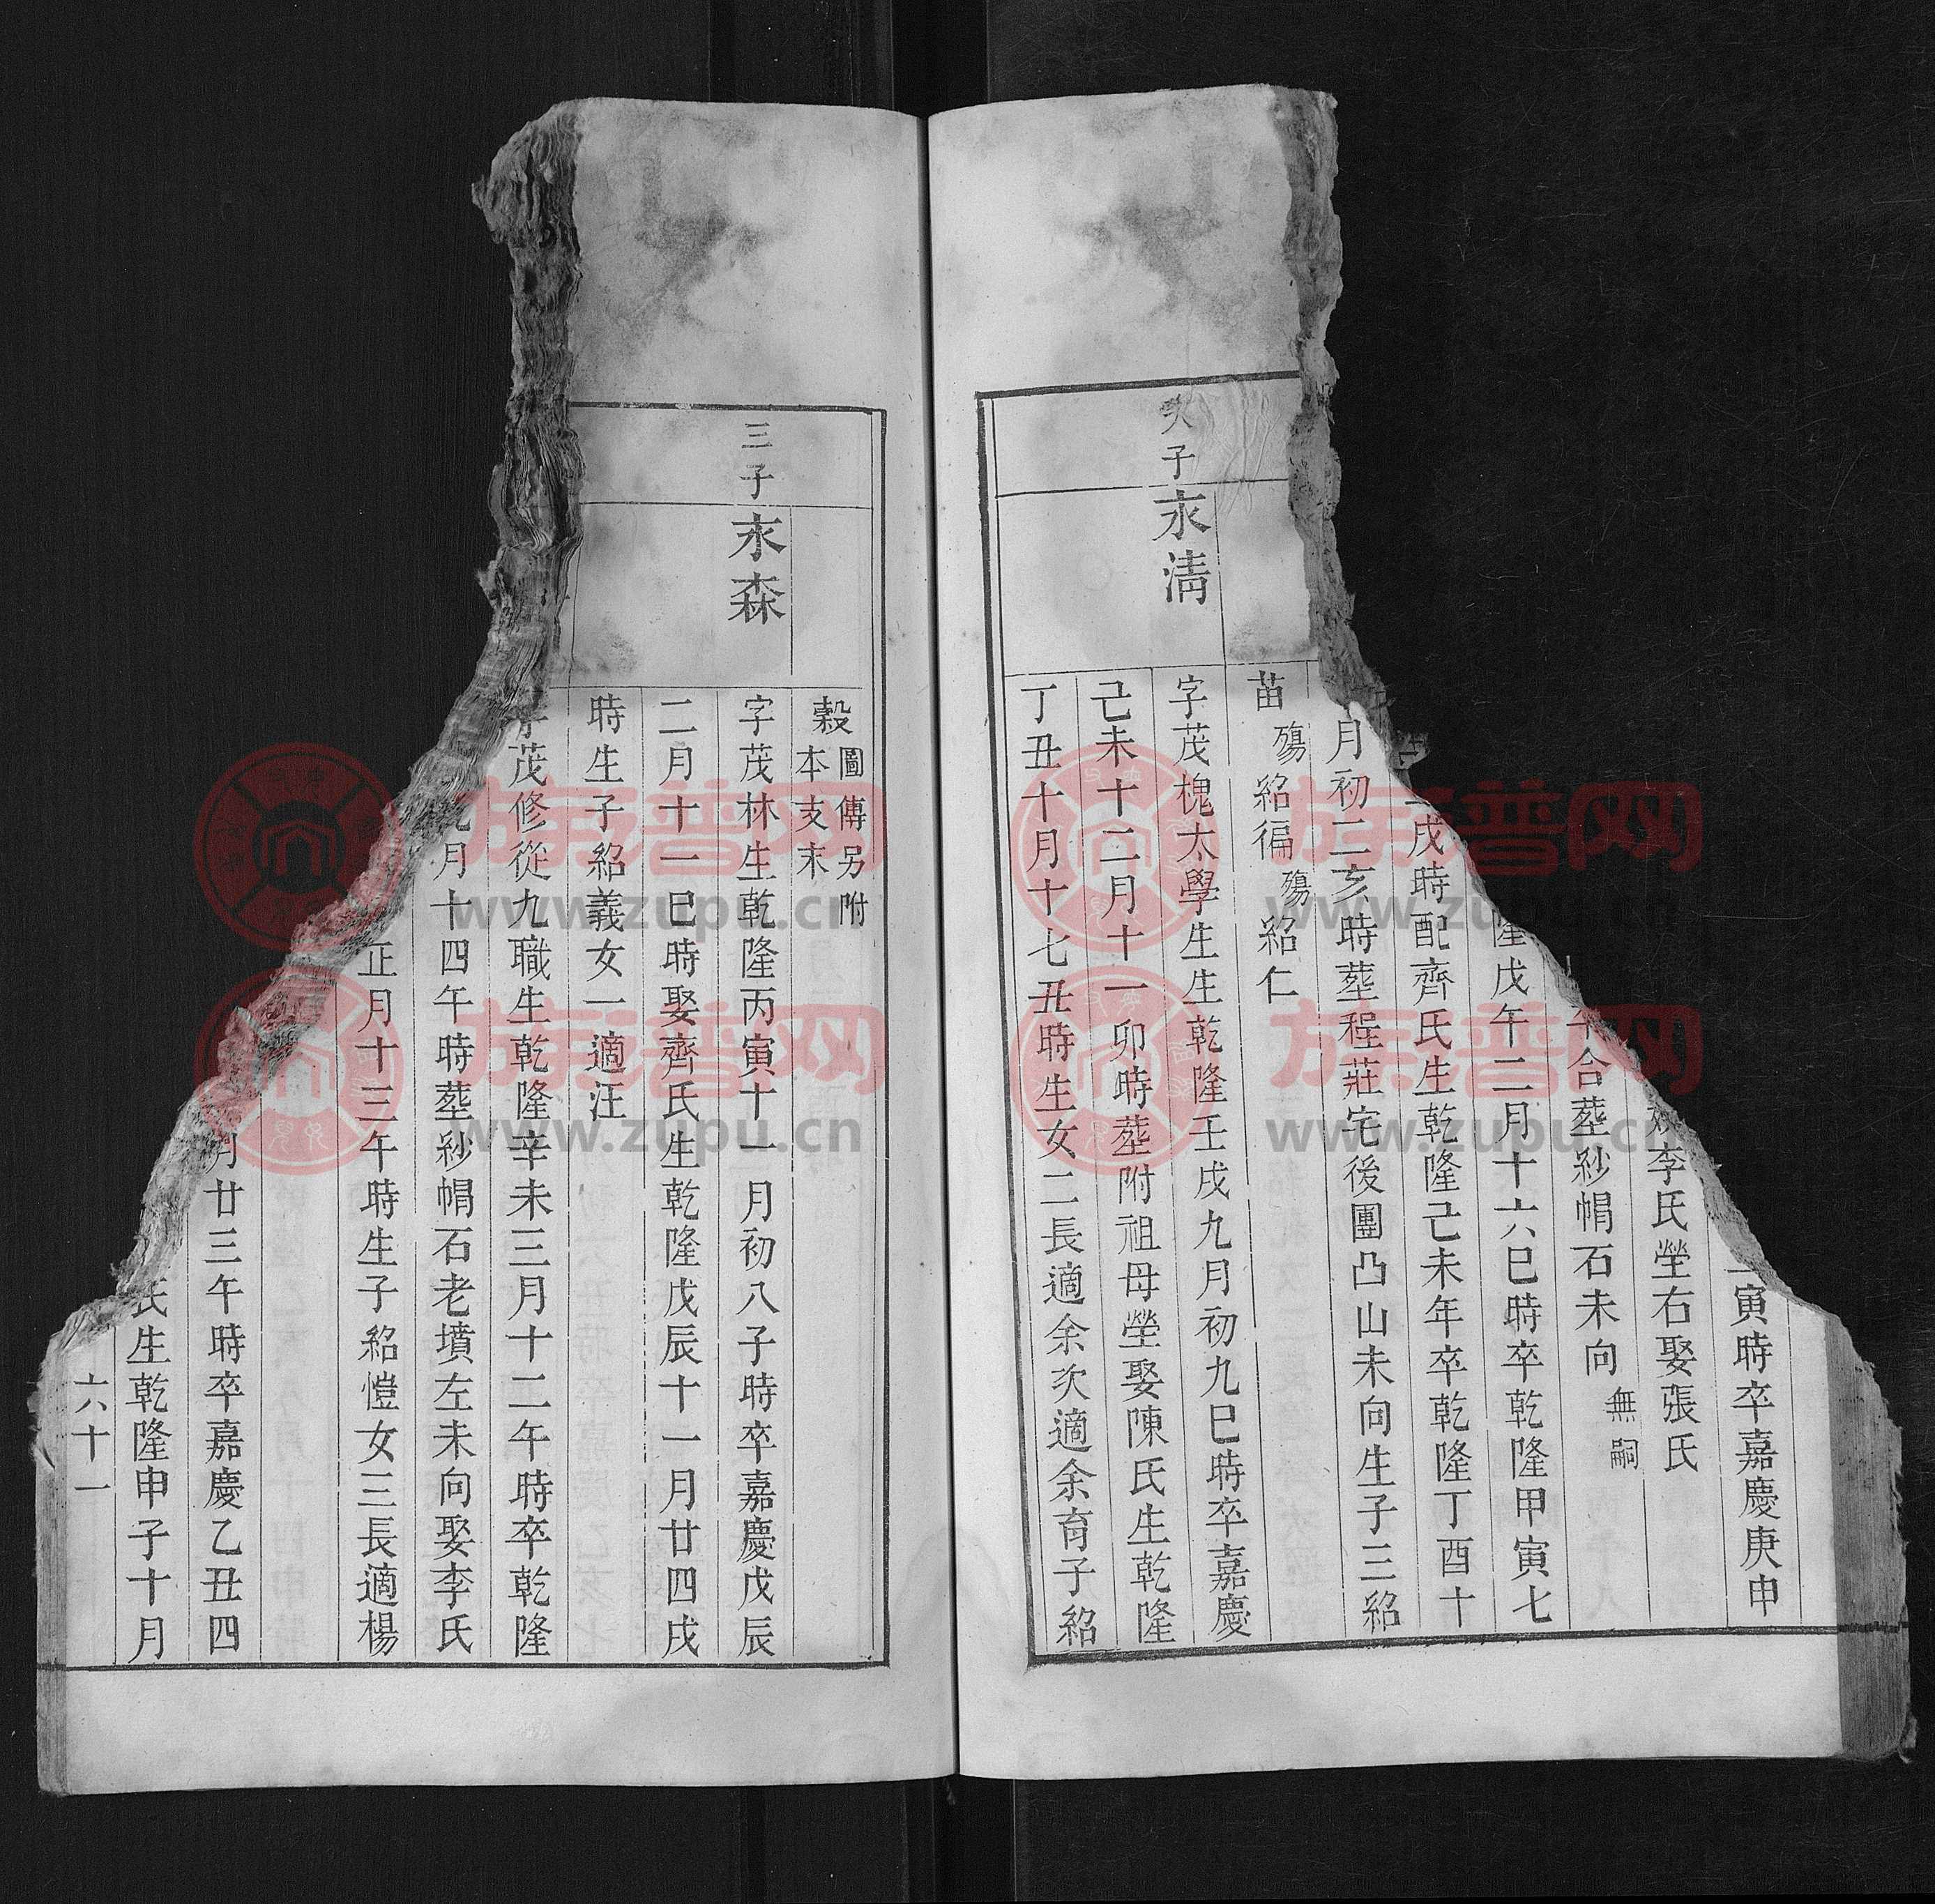 寅時卒嘉慶庚申
李氏塋右娶張氏
合塟紗帽石未向無嗣
隆戊午二月十六巳時卒乾隆甲寅七
戌時配齊氏生乾隆己未年卒乾隆丁酉十
月初二亥時塟程莊宅後團凸山未向生子三紹
苗殤紹徧殤紹仁
次子
永清
字茂槐太學生生乾隆壬戌九月初九巳時卒嘉慶
己未十二月十一卯時塟附祖母塋娶陳氏生乾隆
丁丑十月十七丑時生女二長適余次適余育子紹
穀圖傳另附本支末
三子
永森
字茂林生乾隆丙寅十一月初八子時卒嘉慶戊辰
二月十一巳時娶齊氏生乾隆戊辰十一月廿四戌
時生子紹義女一適汪
字茂修從九職生乾隆辛未三月十二午時卒乾隆
月十四午時塟紗帽石老墳左未向娶李氏
正月十三午時生子紹愷女三長適楊
月廿三午時卒嘉慶乙丑四
氏生乾隆申子十月
六十一
族譜网
www.zupu.cn
族譜网
www.zupu.cn
族譜网
www.zupu.cn
族譜网
www.zupu.cn